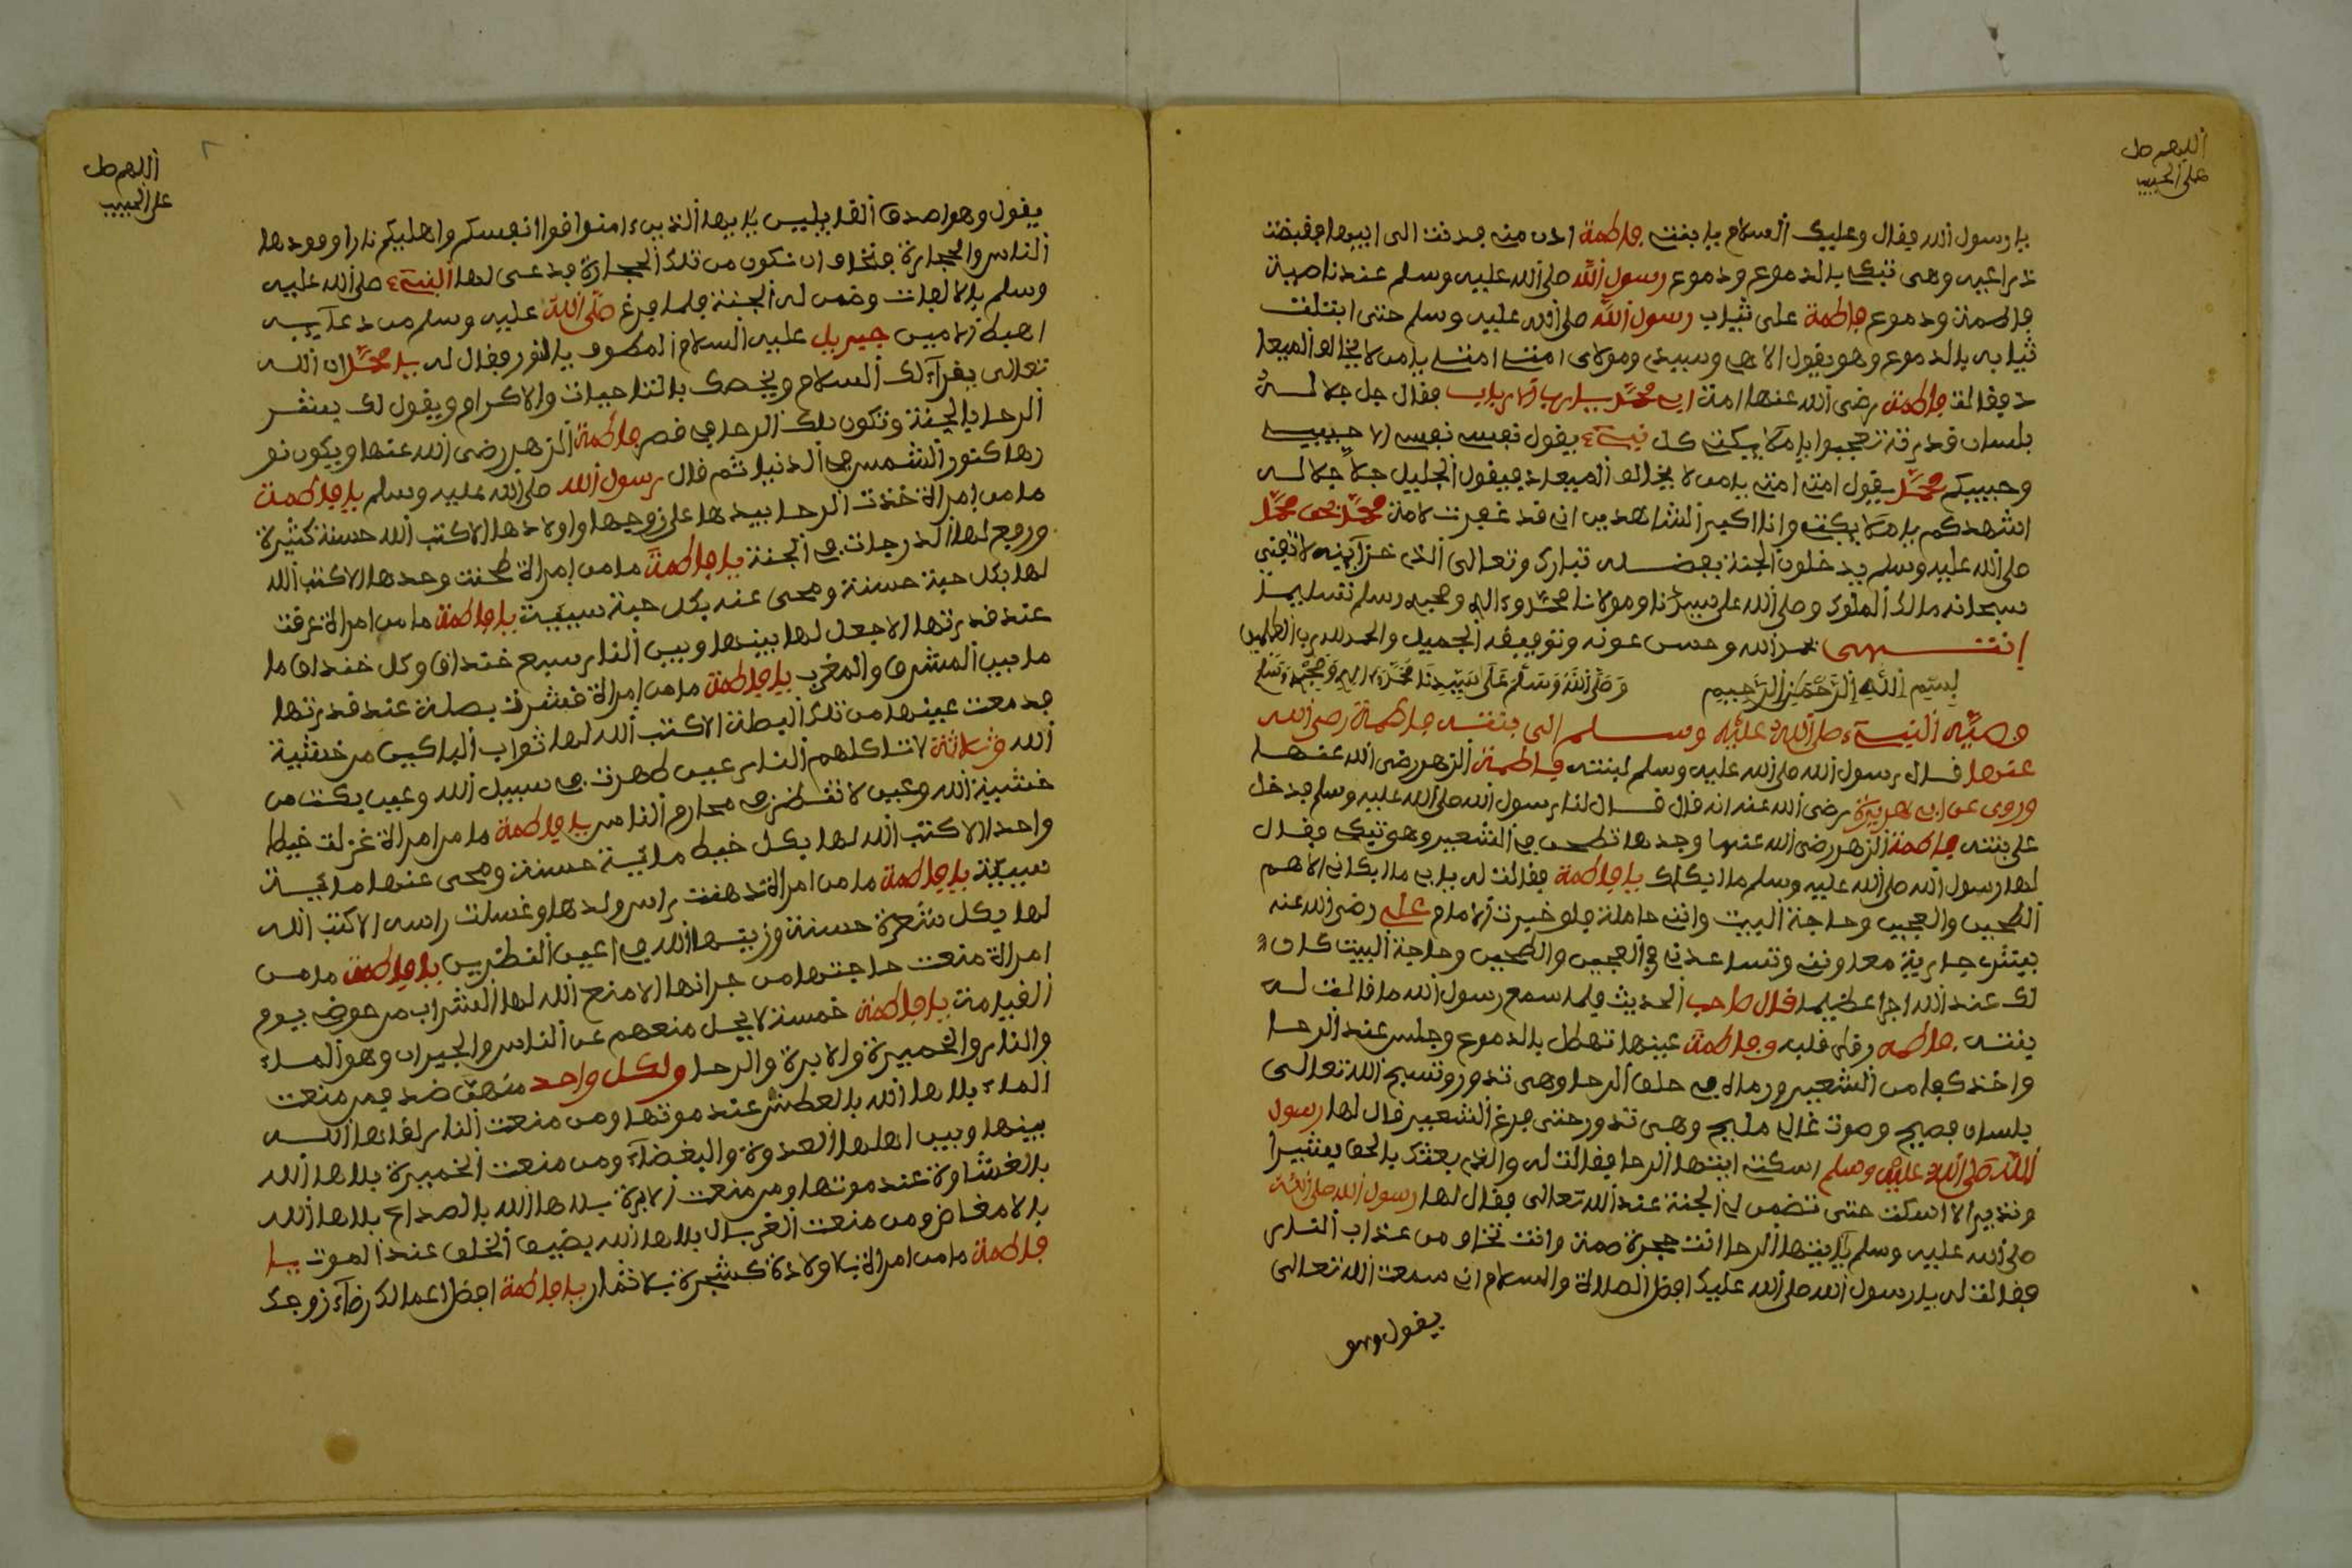 اللهم صل
على الحبيب
يا رسول الله فقال وعليك السلام يا بنتي فاطمة ادن منه فدنت الى ابيها فقبضت
ذراعيه وهي تبكي بالدموع ودموع رسول الله صلى الله عليه وسلم عند ناصية
فاطمة ودموع فاطمة على ثياب رسول الله صلى الله عليه وسلم حتى ابتلت
ثيابه بالدموع وهو يقول الاهي وسيدي ومولاي امتي امتي يا من لا يخالف الميعا
د فقالت فاطمة رضي الله عنها امة ابي محمد يا رب الارباب فقال جل جلاله
بلسان قدرته تعجبوا يا ملايكتي كل نبيء يقول نفسي نفسي الا حبيبي
وحبيبكم محمد يقول امتي امتي يا من لا يخالف الميعاد فيقول الجليل جل جلاله
اشهدكم يا ملايكتي وانا اكبر الشاهدين اني قد غفرت لامة محمد بحق محمد
صلى الله عليه وسلم يدخلون الجنة بفضله تبارك وتعالى الذي خزاينه لا تفنى
سبحانه مالك الملوك وصلى الله على سيدنا ومولانا محمد وءاله وصحبه وسلم تسليما
انتهى بحمد الله وحسن عونه وتوفيقه الجميل والحمد لله رب العالمين
بسم الله الرحمن الرحيم وصلى الله وسلم على سيدنا محمد وءاله وصحبه وسلم
وصية النبيء صلى الله عليه وسلم الى بنته فاطمة رضي الله
عنها قال رسول الله صلى الله عليه وسلم لبنته فاطمة الزهر رضي الله عنها
وروى عن ابي هريرة رضي الله عنه انه قال قال لنا رسول الله صلى الله عليه وسلم فدخل
على بنته فاطمة الزهر رضي الله عنها وجدها تطحن في الشعير وهو تبكي فقال
لها رسول الله صلى الله عليه وسلم ما ابكاك يا فاطمة فقالت له يا ابي ما ابكاني الا هم
الطحين والعجين وحاجة البيت وانت حاملة فلو خيرت الامام علي رضي الله عنه
يشتري جارية معاونتي وتساعدني في العجين والطحين وحاجة البيت كان
لك عند الله اجرا عظيما قال صاحب الحديث فلما سمع رسول الله ما قالت له
بنته فاطمه رق قلبه وفاطمة عينها تهطل بالدموع وجلس عند الرحا
واخذ كفا من الشعير ورماه في حلق الرحا وهي تدور وتسبح الله تعالى
بلسان فصيح وصوت عال مليح وهي تدور حتى فرغ الشعير قال لها رسول
الله صلى الله عليه وسلم اسكتي ايتها الرحا فقالت له والذي بعثك بالحق بشيرا
ونذيرا لا اسكت حتى تضمن لي الجنة عند الله تعالى فقال لها رسول الله صلى الله
صلى الله عليه وسلم يا ايتها الرحا انت حجرة صمة وانت تخاف من عذاب النار
فقالت له يا رسول الله صلى الله عليك افضل الصلاة والسلام اني سمعت الله تعالى
يقول وهو
اللهم صل
على الحبيب
٢
يقول وهو اصدق القايليس يا ايها الذين ءامنوا قوا انفسكم واهليكم نارا وقودها
الناس والحجارة فنخاف ان نكون من تلك الحجارة فدعى لها النبيء صلى الله عليه
وسلم بالالهات وضمن له الجنة فلما فرغ صلى الله عليه وسلم من دعآيه
اهبط الامين جبريل عليه السلام المطوف بالنور فقال له يا محمد ان الله
تعالى يقرآ لك السلام ويخصك بالتاحيات والاكرام ويقول لك يبشر
الرحا بالجنة وتكون تلك الرحا في قصر فاطمة الزهر رضي الله عنها ويكون نو
رها كنور الشمس في الدنيا ثم قال رسول الله صلى الله عليه وسلم يا فاطمة
ما من امراة خذت الرحا بيدها على زوجها واولادها الا كتب الله حسنة كثيرة
ورفع لها الدرجات في الجنة يا فاطمة ما من امراة طحنت وحدها الا كتب الله
لها بكل حبة حسنة ومحى عنه بكل حبة سيية يا فاطمة ما من امراة عرقت
عند قدرتها الا جعل لها بينها وبين النار سبع خنداق وكل خنداق ما
ما بين المشرق والمغرب يا فاطمة ما من امراة قشرت بصلة عند قدرتها
فدمعت عينها من تلك البصلة الا كتب الله لها ثواب الباكين من خشية
الله وثلاثة لا تاكلهم النار عين طهرت في سبيل الله وعين بكت من
خشية الله وعين لا تنظر في محارم الناس يا فاطمة ما من امراة غزلت خيط
واحدا الا كتب الله لها بكل خيط ماية حسنة ومحى عنها ماية
سيية يا فاطمة ما من امراة تدهنت راس ولدها وغسلت راسه الا كتب الله
لها بكل شعرة حسنة وزينها الله في اعين النظرين يا فاطمة ما من
امراة منعت حاجتها من جرانها الا منع الله لها الشراب من حوضي يوم
القيامة يا فاطمة خمسة لا يحل منعهم عن الناس والجيران وهو الماء
والنار والخميرة والابرة والرحا ولكل واحد منهن ضد فمن منعت
الماء بلاها الله بالعطش عند موتها ومن منعت النار لقاها الله
بينها وبين اهلها العدوة والبغضآء ومن منعت الخميرة بلاها الله
بالغشاوة عند موتها ومن منعت الابرة بلاها الله بالصداع بلاها الله
بالامغاض ومن منعت الغربال بلاها الله بضيق الخلق عند الموت يا
فاطمة ما من امراة بلا ولادة كشجرة بلا ثمار يا فاطمة افضل اعمالك رضآء زوجك